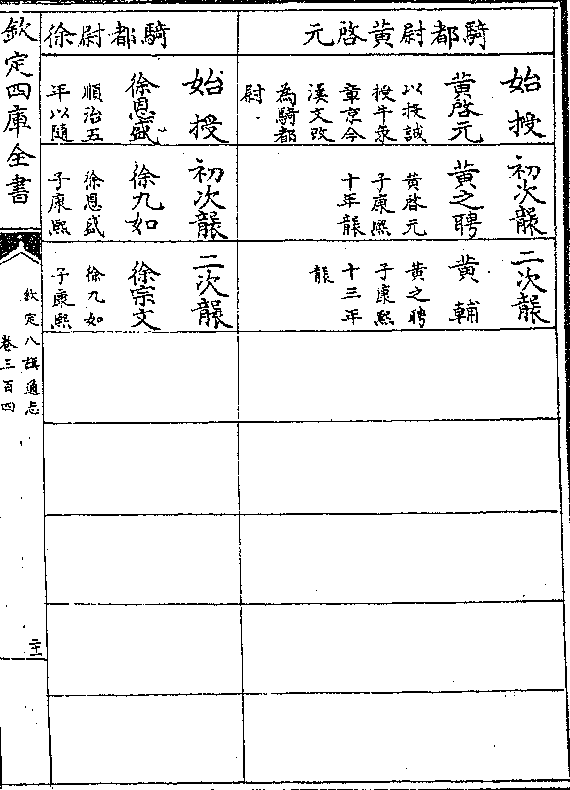 騎都尉黃啓元
始授
黃啓元
以投誠
授牛彔
章京今
漢文改
為騎都
尉
初次襲
黃之聘
黃啓元
子康熙
十年襲
二次襲
黃輔
黃之聘
子康熙
十三年
襲
騎都尉徐
始授
徐恩盛
順治五
年以隨
初次襲
徐九如
徐恩盛
子康熙
二次襲
徐宗文
徐九如
子康熙
欽定四庫全書
欽定八旗通志
卷三百四